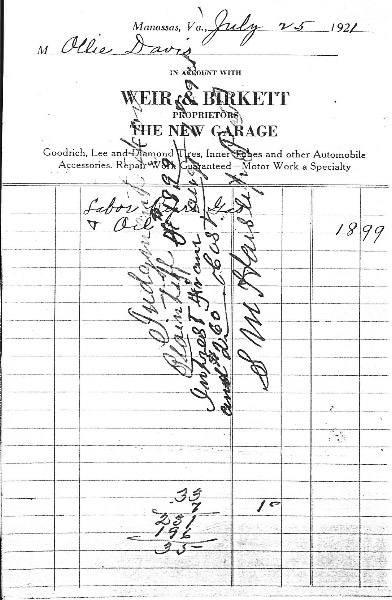 Manassas, Va., July 25 1921
M Ollie Davis
IN ACCOUNT WITH
WEIR & BIRKETT
PROPRIETORS
THE NEW GARAGE
Goodrich, Lee and Diamond Tires, Inner Tubes and other Automobile
Accessories. Repair Work Guaranteed Motor Work a Specialty
Labor Gas
& Oil 18 99
Judgment
Plaintiff 18 99
Intrest from
and $2.60 Cost
33
7 1
231
196
35